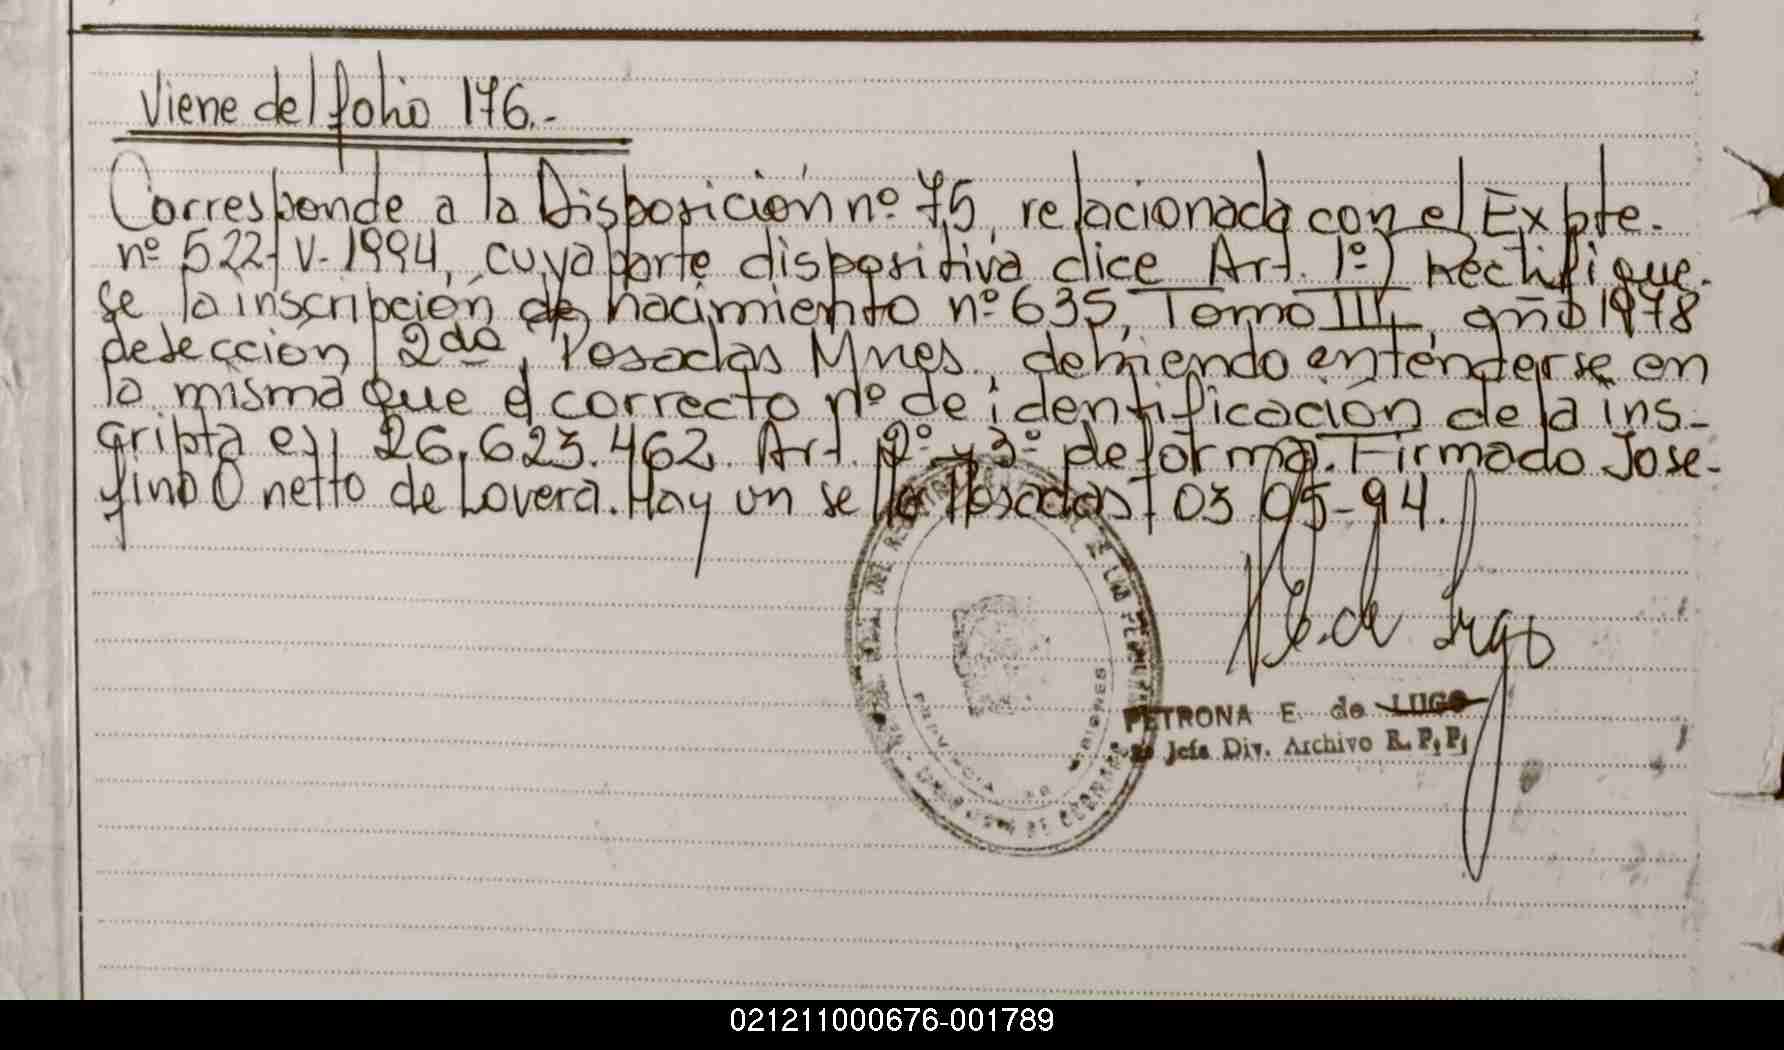 Viene del folio 176.-
Corresponde a la Disposición nº 75, relacionada con el Expte.
nº 522-V-1994, cuya parte dispositiva dice Art. 1º) Rectifique-
se la inscripción de nacimiento nº 635, Tomo III, año 1978
de sección 2da, Posadas Mnes, debiendo entenderse en
la misma que el correcto nº de identificación de la ins-
cripta es 26.623.462. Art. 2º y 3º de forma. Firmado Jose-
fina O netto de Lovera. Hay un sello Posadas 03-05-94.
PETRONA E. de LUGO
Jefa Div. Archivo R. P. P.
PROVINCIA DE MISIONES
021211000676-001789